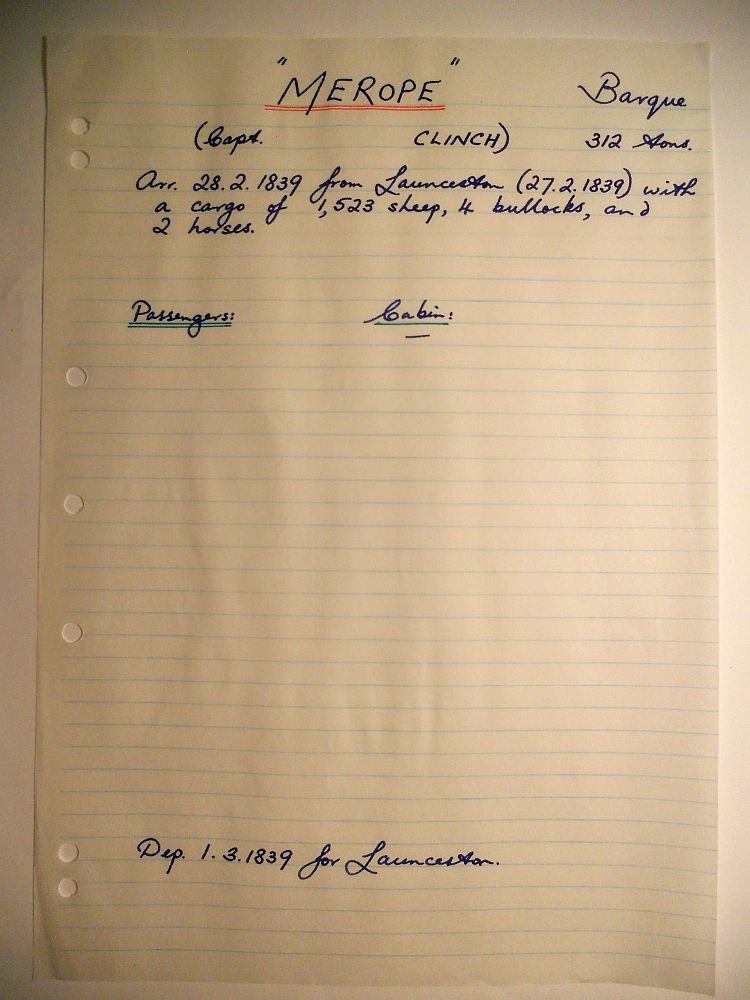 "MEROPE" Barque
(Capt. CLINCH) 312 tons.
Arr. 28.2.1839 from Launceston (27.2.1839) with
a cargo of 1,523 sheep, 4 bullocks, and
2 horses.
Passengers: Cabin:
—
Dep. 1.3.1839 for Launceston.